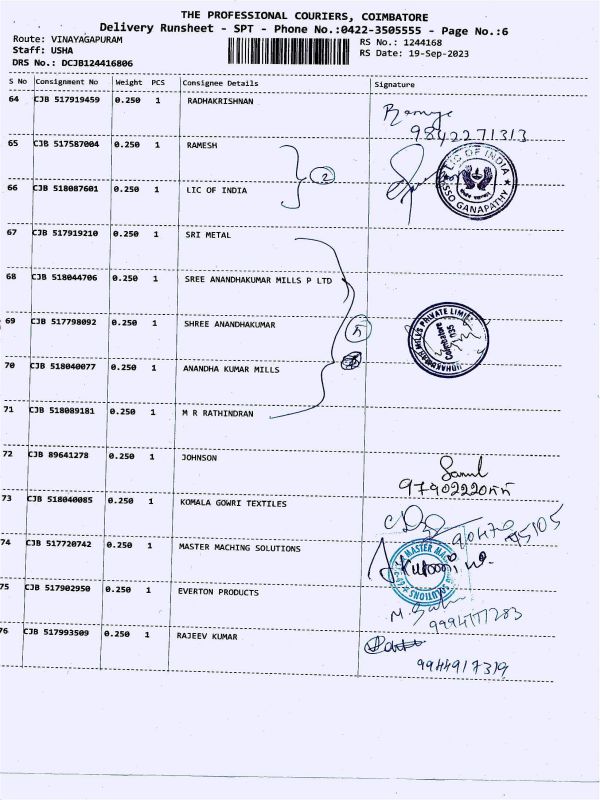 THE PROFESSIONAL COURIERS, COIMBATORE
Delivery Runsheet - SPT - Phone No.:0422-3505555 - Page No.:6
Route: VINAYAGAPURAM
RS No.: 1244168
Staff: USHA
RS Date: 19-Sep-2023
DRS No.: DCJB124416806
S No Consignment No Weight PCS Consignee Details Signature
64 CJB 517919459 0.250 1 RADHAKRISHNAN
9842271313
65 CJB 517587004 0.250 1 RAMESH
2
LIC OF INDIA
GANAPATHY
66 CJB 518087601 0.250 1 LIC OF INDIA
67 CJB 517919210 0.250 1 SRI METAL
68 CJB 518044706 0.250 1 SREE ANANDHAKUMAR MILLS P LTD
69 CJB 517798092 0.250 1 SHREE ANANDHAKUMAR
5
MILLS PRIVATE LIMITED
Coimbatore
70 CJB 518040077 0.250 1 ANANDHA KUMAR MILLS
71 CJB 518089181 0.250 1 M R RATHINDRAN
72 CJB 89641278 0.250 1 JOHNSON
73 CJB 518040085 0.250 1 KOMALA GOWRI TEXTILES
74 CJB 517720742 0.250 1 MASTER MACHING SOLUTIONS
MASTER
SOLUTIONS
75 CJB 517902950 0.250 1 EVERTON PRODUCTS
76 CJB 517993509 0.250 1 RAJEEV KUMAR
9944917319